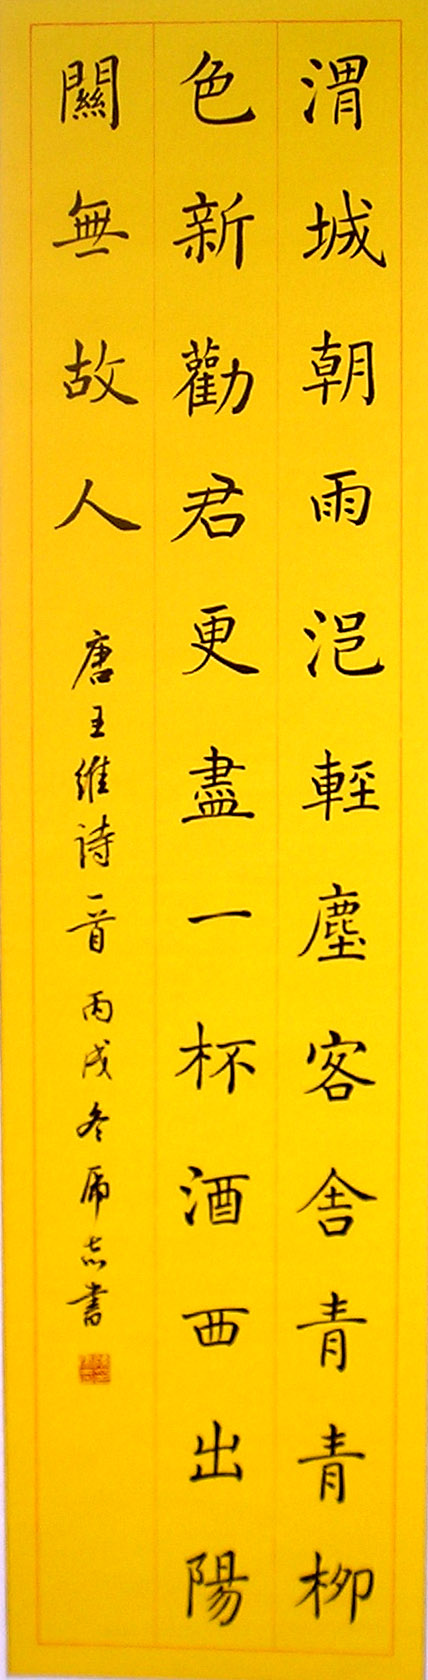 渭城朝雨浥輕塵客舍青青柳
色新勸君更盡一杯酒西出陽
關無故人
唐王維诗一首 丙戌冬 书